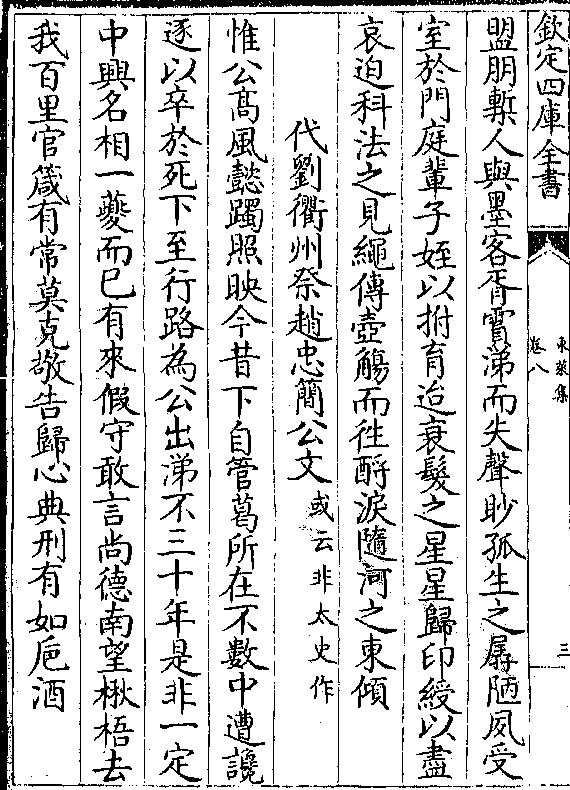 欽定四庫全書
東萊集
卷八
三
盟朋慙人與墨客胥霣涕而失聲眇孤生之孱陋夙受
室於門庭輩子姪以拊育迨衰髮之星星歸印綬以盡
哀迫科法之見繩傳壺觴而徃酹淚隨河之東傾
代劉衢州祭趙忠簡公文或云非太史作
惟公髙風懿躅照映今昔下自管葛所在不數中遭讒
逐以卒於死下至行路為公出涕不三十年是非一定
中興名相一夔而已有來假守敢言尚德南望楸梧去
我百里官箴有常莫克敬告歸心典刑有如巵酒